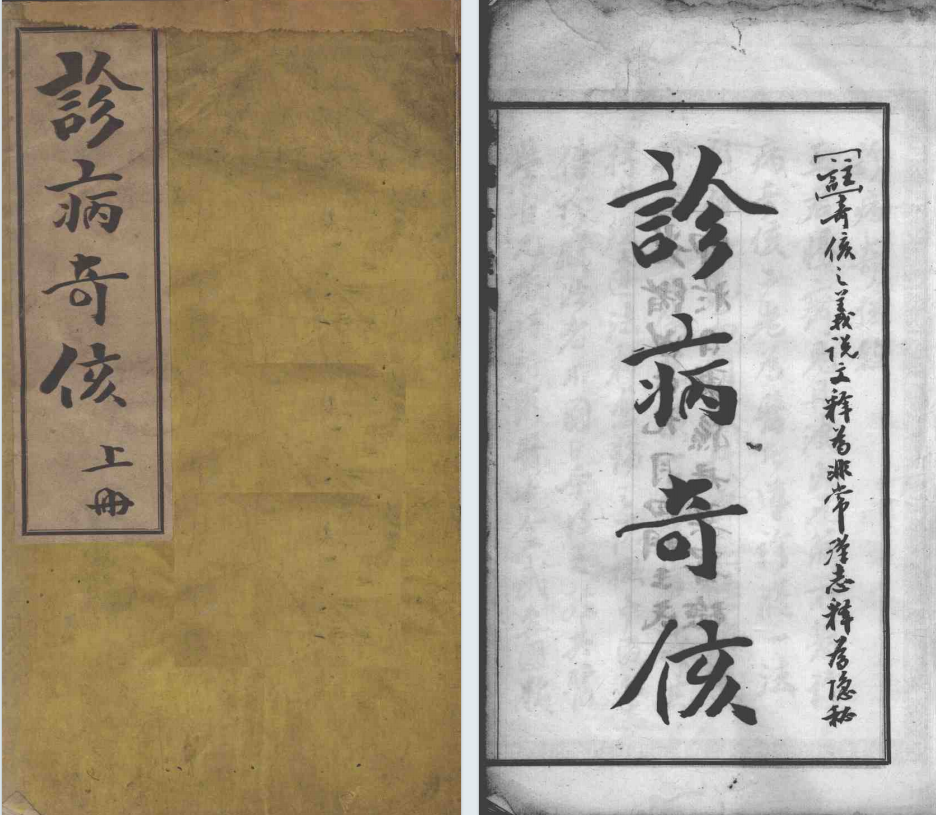 診病奇侅
上冊
[註]奇侅之義说文釋為非常漢志釋為隐秘
診病奇侅